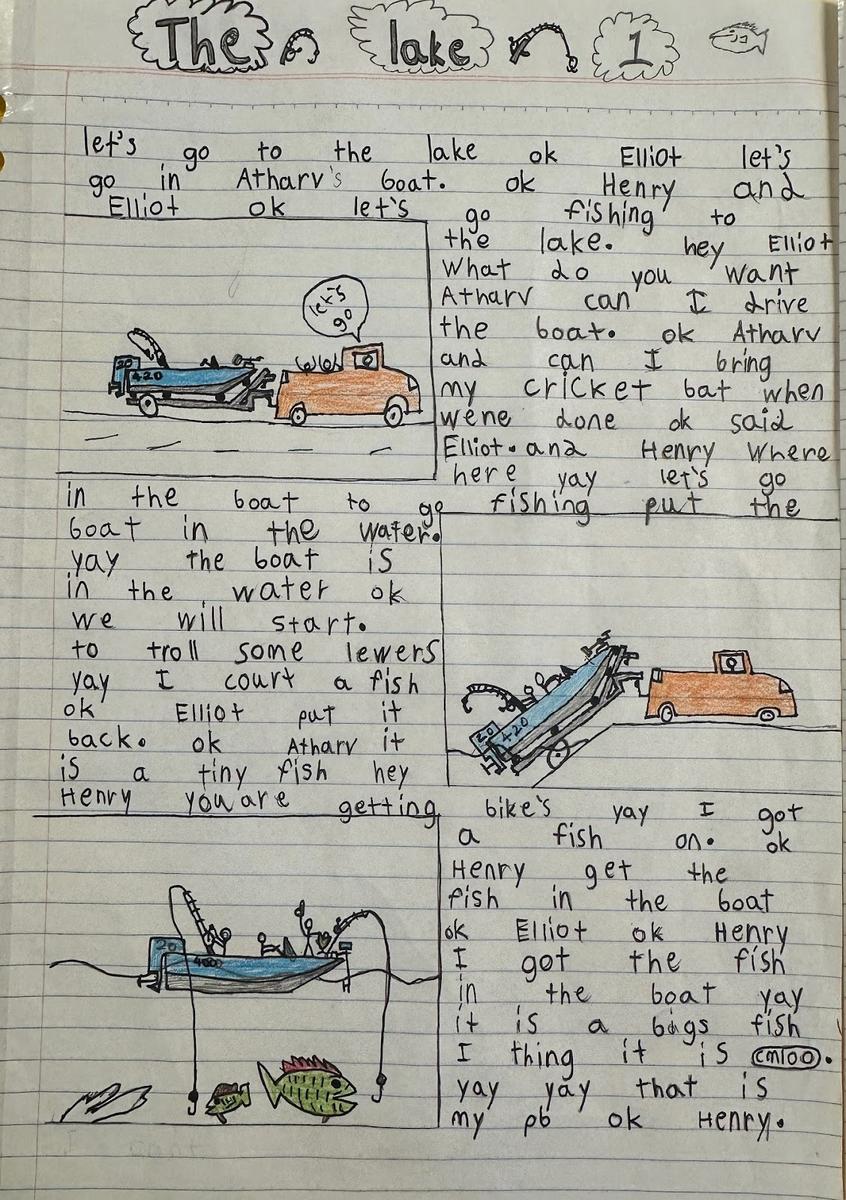 The lake 1
let's go to the lake ok Elliot let's
go in Atharv's boat. ok Henry and
Elliot ok let's go fishing to
the lake. hey Elliot
What do you want
Atharv can I drive
the boat. ok Atharv
and can I bring
my cricket bat when
wene done ok said
Elliot. and Henry Where
here yay let's go
let's
go
20
420
in the boat to go fishing put the
boat in the water.
yay the boat is
in the water ok
we will start.
to troll some lewers
yay I court a fish
ok Elliot put it
back. ok Atharv it
is a tiny fish hey
Henry you are getting bike's yay I got
20
420
a fish on. ok
Henry get the
fish in the boat
ok Elliot ok Henry
I got the fish
in the boat yay
it is a bigs fish
I thing it is cm100.
yay yay that is
my pb ok Henry.
20